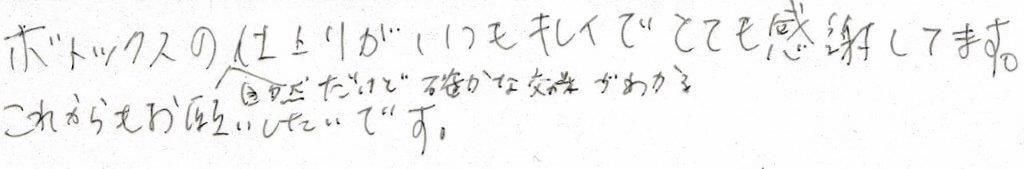 ボトックスの仕上りがいつもキレイでとても感謝してます。
自然だけど確かな効果がわかる
これからもお願いしたいです。